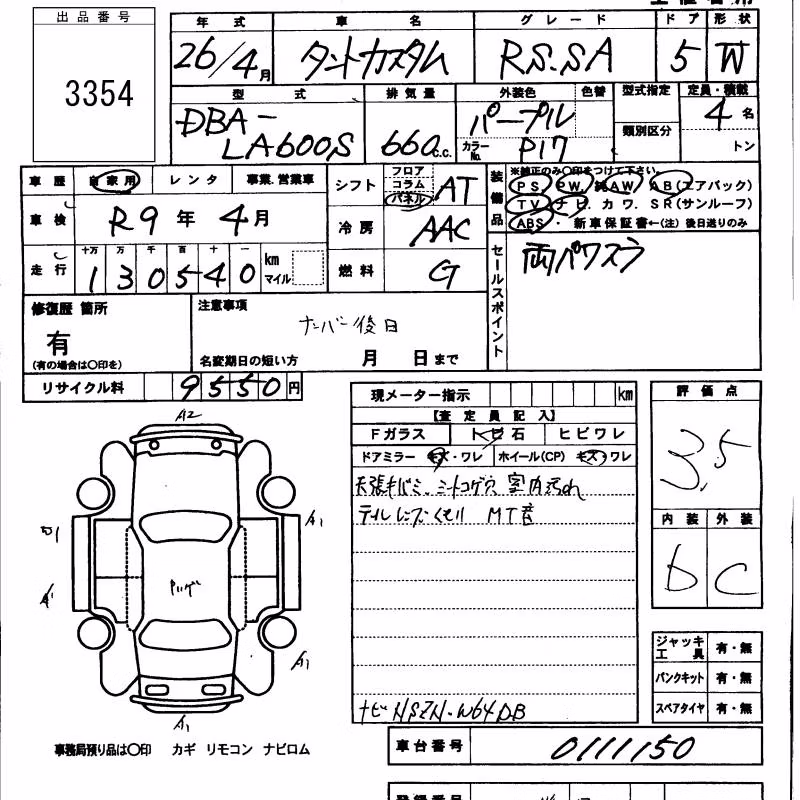 出品番号
3354
年式 車名 グレード ドア 形状
26/4月 タントカスタム RS.SA 5 W
型式 排気量 外装色 色替 型式指定 定員・積載
DBA-LA600S 660c.c. パープル 類別区分 4名
カラーNo. P17 トン
車歴 自家用 レンタ 事業.営業車
車検 R9年4月
走行 十万 万 千 百 十 一
130540 km マイル
シフト フロア コラム パネル AT
冷房 AAC
燃料 G
装備品
※純正のみ○印をつけて下さい。
PS PW. 純AW AB(エアバック)
TV ナビ. カワ. SR(サンルーフ)
ABS ・ 新車保証書←(注) 後日送りのみ
セールスポイント
両パワスラ
修復歴 箇所
有
(有の場合は○印を)
注意事項
ナンバー後日
名変期日の短い方 月 日まで
リサイクル料 9550円
現メーター指示 km
【査定員記入】
Fガラス トビ石 ヒビワレ
ドアミラー キズ・ワレ ホイール(CP) キズ・ワレ
室内汚れ
MT音
ナビ NSZN-W64DB
評価点
3.5
内装 外装
b C
ジャッキ工具 有・無
パンクキット 有・無
スペアタイヤ 有・無
A2
A1
A1
A1
事務局預り品は○印 カギ リモコン ナビロム
車台番号 0111150